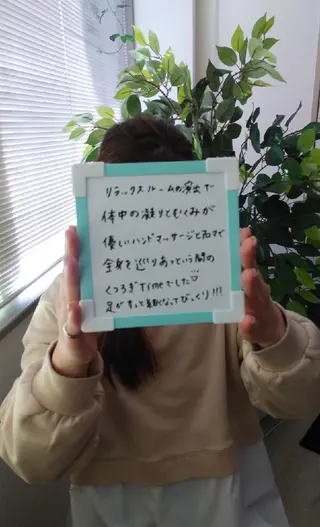 リラックスルームの演出で
体中の凝りとむくみが
優しいハンドマッサージとアロマで
全身を巡りあっという間の
くつろぎTimeでした
足がすっと軽くなってびっくり!!!